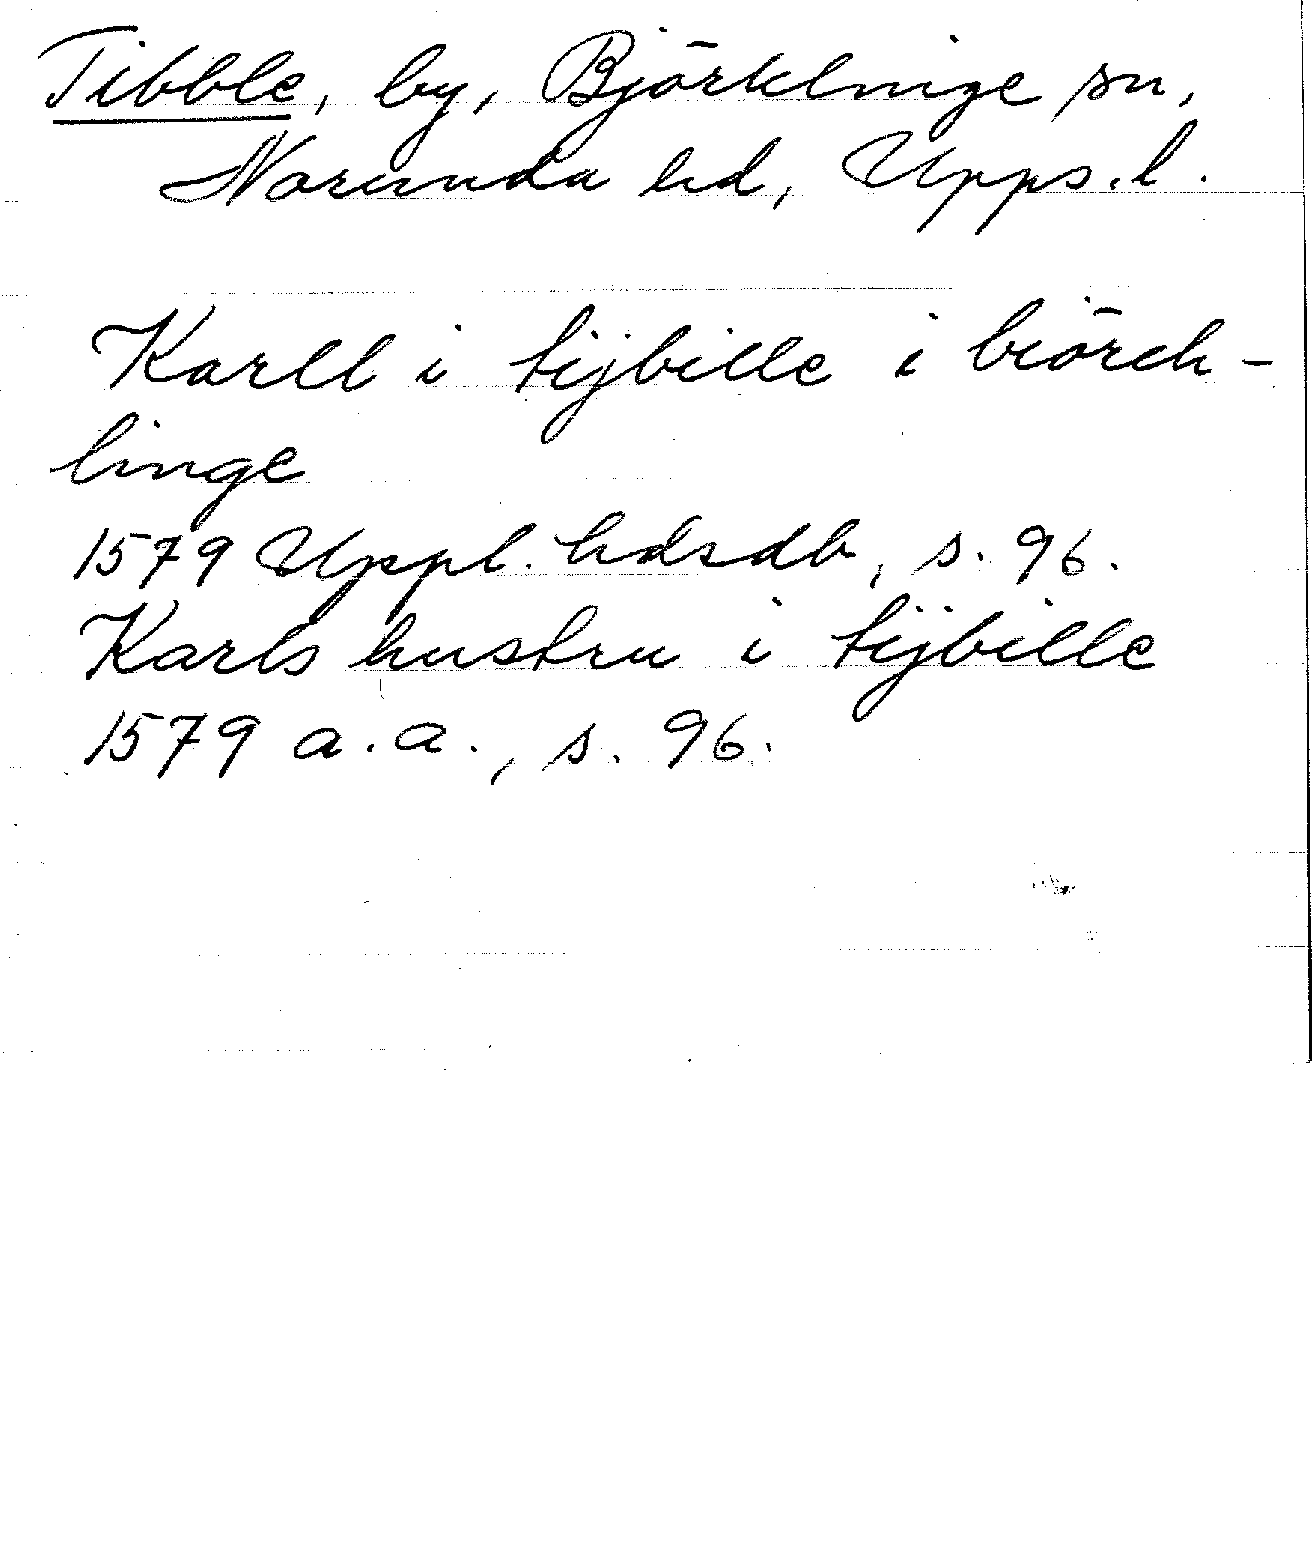 Tibble, by, Björklinge sn,
Norunda hd, Upps. l.
Karll i tijbille i biörch-
linge
1579 Uppl. hdsdb, s. 96.
Karls hustru i tijbille
1579 a. a., s. 96.